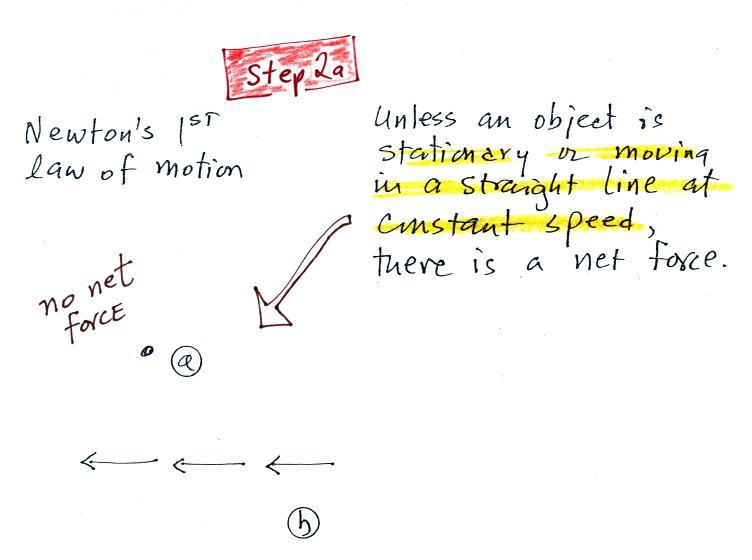 Step 2a
Newton's 1ST
law of motion
Unless an object is
stationary or moving
in a straight line at
constant speed,
there is a net force.
no net
force
a
b